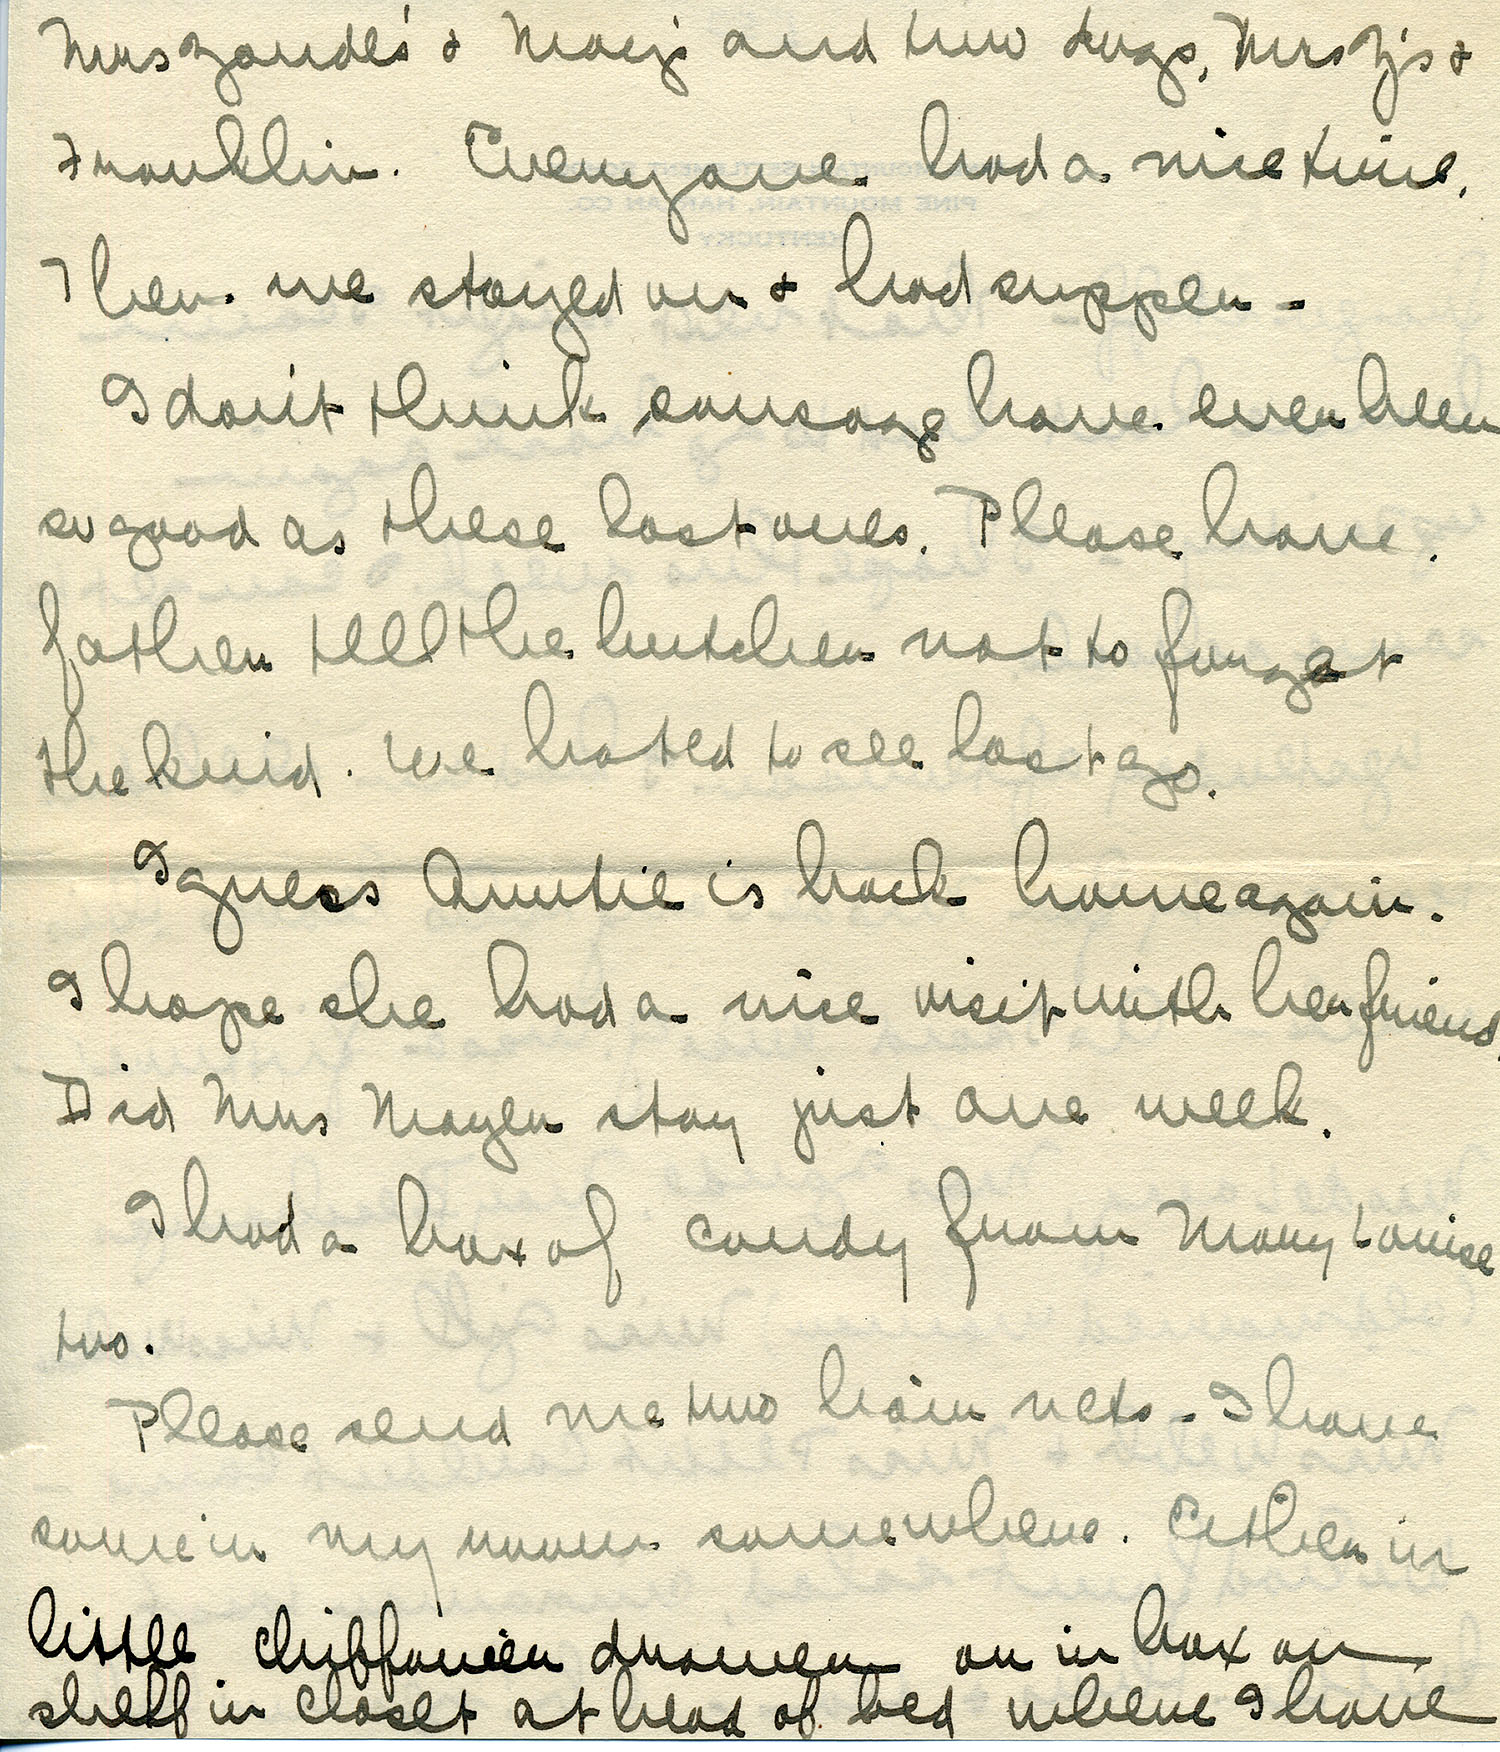 Mrs Zande's & Mary's and two dogs, Mrs Z's &
Franklin. Everyone had a nice time.
Then we stayed on & had supper -
I don't think sausage have ever been
so good as these last ones. Please have
father tell the butcher not to forget
the kind. We hated to see last go.
I guess Auntie is back home again.
I hope she had a nice visit with her friend.
Did Mrs Mayer stay just one week.
I had a box of candy from Mary Louise
too.
Please send me two hair nets - I have
some in my room somewhere. Either in
little chiffonier drawer or in box on
shelf in closet at head of bed where I have
PINE MOUNTAIN, HARLAN CO.
KENTUCKY